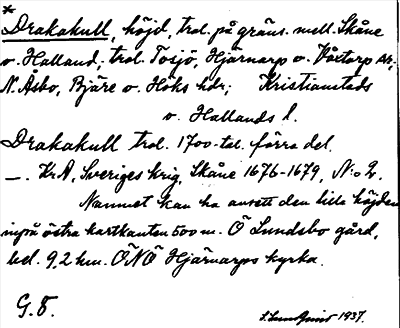 * Drakakull, höjd, trol. på gräns. mell. Skåne
o. Halland; trol. Tosjö, Hjärnarp o. Våxtorp snr;
N. Åsbo, Bjäre o. Höks hdr; Kristianstads
o. Hallands l.
Drakakull trol. 1700-tal. förra del.
—. Kr.A, Sveriges krig, Skåne 1676-1679, N:o 2.
Namnet kan ha avsett den lilla höjden
inpå östra kartkanten 500 m. Ö Lundsbo gård,
bel. 9,2 km. ÖNÖ Hjärnarps kyrka.
G. F.
1937.